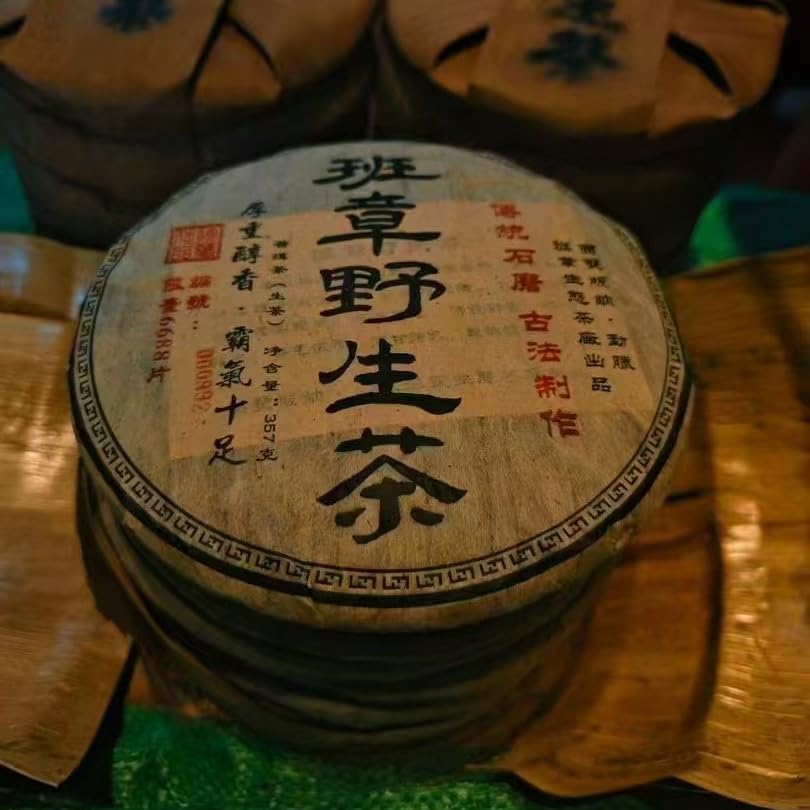 班章野生茶
傳統石磨 古法制作
西雙版納·勐臘
班章生態茶廠出品
普洱茶（生茶） 净含量：357克
厚重醇香·霸氣十足
編號：
限量6688片